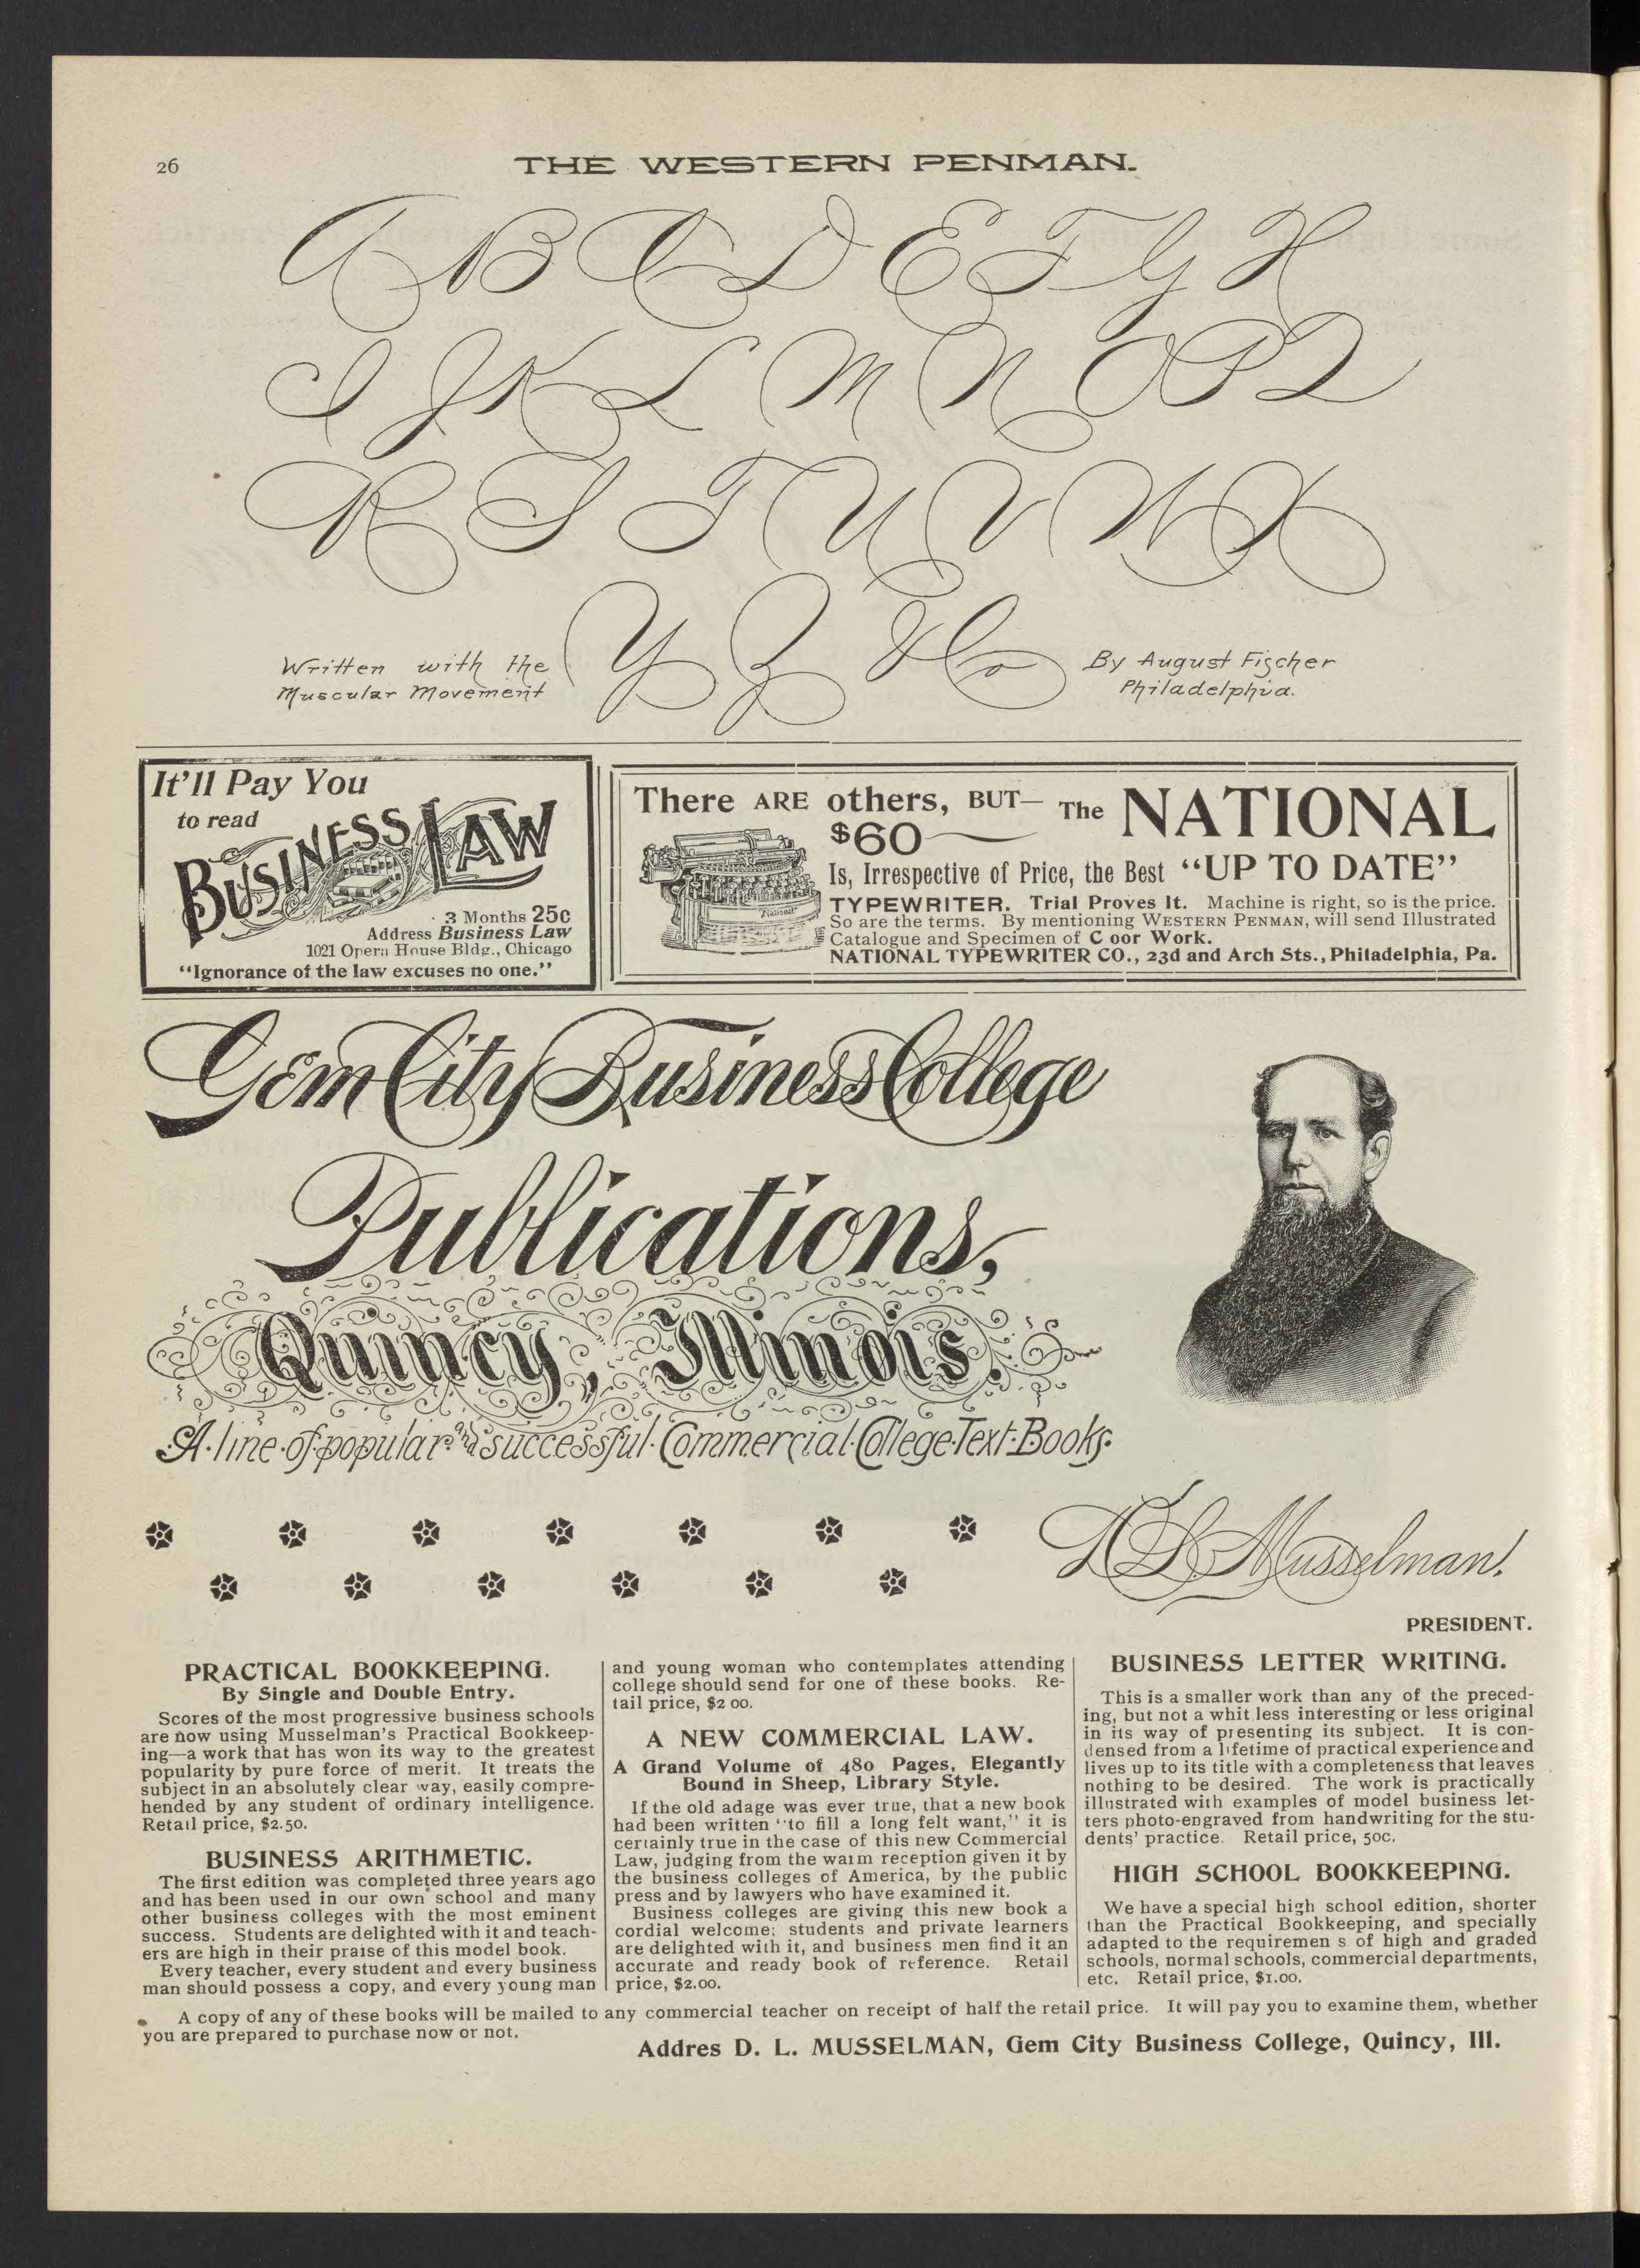 26
THE WESTERN PENMAN.
A B C D E F G H
I J K L M N O P Q
R S T U V W X
Y Z & Co
Written with the
Muscular Movement
By August Fischer
Philadelphia.
It'll Pay You
to read
BUSINESS LAW
3 Months 25c
Address Business Law
1021 Opera House Bldg., Chicago
“Ignorance of the law excuses no one.”
There ARE others, BUT— The NATIONAL
$60
Is, Irrespective of Price, the Best “UP TO DATE”
TYPEWRITER. Trial Proves It. Machine is right, so is the price.
So are the terms. By mentioning WESTERN PENMAN, will send Illustrated
Catalogue and Specimen of C oor Work.
NATIONAL TYPEWRITER CO., 23d and Arch Sts., Philadelphia, Pa.
National
Gem City Business College
Publications,
Quincy, Illinois.
A line of popular and successful Commercial College Text Books.
D L Musselman.
PRESIDENT.
PRACTICAL BOOKKEEPING.
By Single and Double Entry.
Scores of the most progressive business schools
are now using Musselman's Practical Bookkeep-
ing—a work that has won its way to the greatest
popularity by pure force of merit. It treats the
subject in an absolutely clear way, easily compre-
hended by any student of ordinary intelligence.
Retail price, $2.50.
BUSINESS ARITHMETIC.
The first edition was completed three years ago
and has been used in our own school and many
other business colleges with the most eminent
success. Students are delighted with it and teach-
ers are high in their praise of this model book.
Every teacher, every student and every business
man should possess a copy, and every young man
and young woman who contemplates attending
college should send for one of these books. Re-
tail price, $2 00.
A NEW COMMERCIAL LAW.
A Grand Volume of 480 Pages, Elegantly
Bound in Sheep, Library Style.
If the old adage was ever true, that a new book
had been written “to fill a long felt want,” it is
certainly true in the case of this new Commercial
Law, judging from the warm reception given it by
the business colleges of America, by the public
press and by lawyers who have examined it.
Business colleges are giving this new book a
cordial welcome; students and private learners
are delighted with it, and business men find it an
accurate and ready book of reference. Retail
price, $2.00.
BUSINESS LETTER WRITING.
This is a smaller work than any of the preced-
ing, but not a whit less interesting or less original
in its way of presenting its subject. It is con-
densed from a lifetime of practical experience and
lives up to its title with a completeness that leaves
nothing to be desired. The work is practically
illustrated with examples of model business let-
ters photo-engraved from handwriting for the stu-
dents' practice. Retail price, 50c.
HIGH SCHOOL BOOKKEEPING.
We have a special high school edition, shorter
than the Practical Bookkeeping, and specially
adapted to the requiremen s of high and graded
schools, normal schools, commercial departments,
etc. Retail price, $1.00.
A copy of any of these books will be mailed to any commercial teacher on receipt of half the retail price. It will pay you to examine them, whether
you are prepared to purchase now or not.
Addres D. L. MUSSELMAN, Gem City Business College, Quincy, Ill.